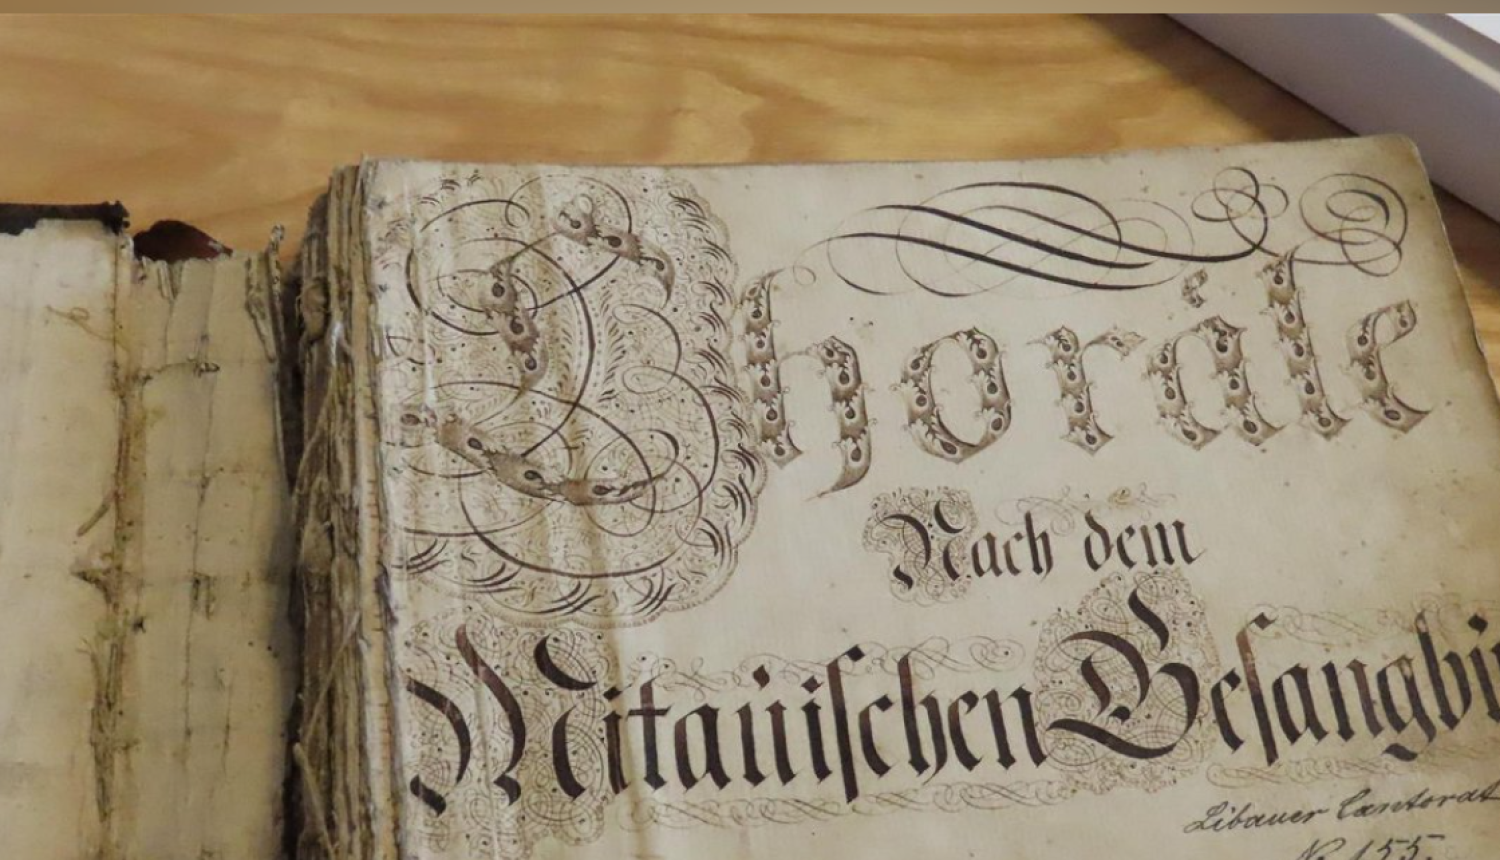 Choräle
Nach dem
Mitauischen Gesangbu
Libauer Cantorat
N. 155